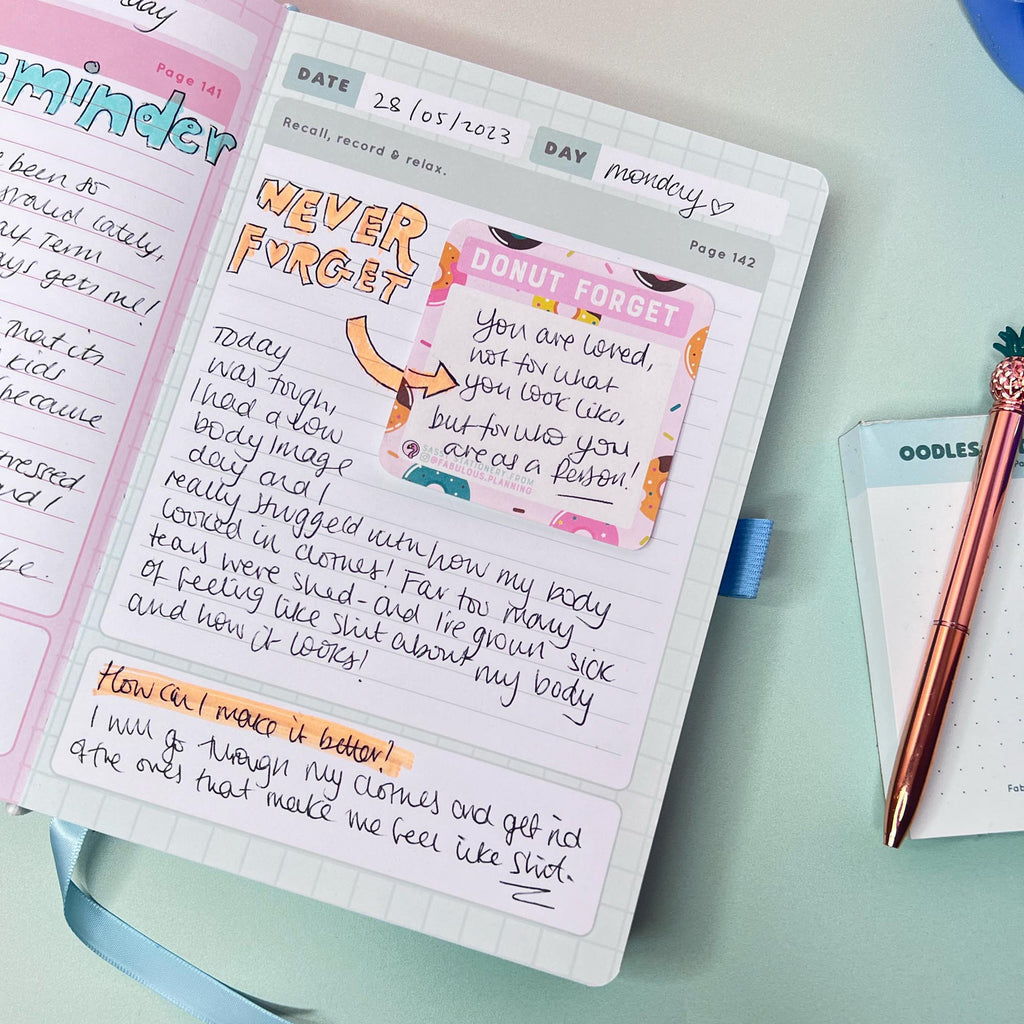 day
Page 141
eminder
been so
lately,
Term
gets me!
that its
kids
because
stressed
and I
be.
DATE
28/05/2023
DAY
monday ♡
Recall, record & relax.
Page 142
NEVER
FORGET
DONUT FORGET
You are loved,
not for what
you look like,
but for who you
are as a person!
SASSY STATIONERY FROM
@FABULOUS.PLANNING
Today
was tough,
I had a low
body image
day and I
really struggled with how my body
looked in clothes! Far too many
tears were shed - and I've grown sick
of feeling like shit about my body
and how it looks!
How can I make it better?
I will go through my clothes and get rid
of the ones that make me feel like shit.
OODLES
Fab